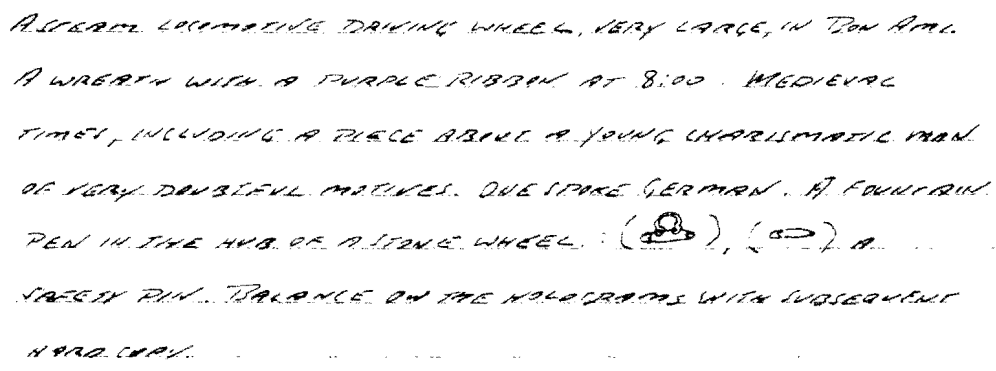 A STEAM LOCOMOTIVE DRIVING WHEEL, VERY LARGE, IN BON AMI.
A WREATH WITH A PURPLE RIBBON AT 8:00. MEDIEVAL
TIMES, INCLUDING A PIECE ABOUT A YOUNG, CHARISMATIC MAN
OF VERY DOUBTFUL MOTIVES. ONE SPOKE GERMAN. A FOUNTAIN
PEN IN THE HUB OF A STONE WHEEL. : ( ), ( ) A
SAFETY PIN. BALANCE ON THE HOLOGRAMS WITH SUBSEQUENT
HARD COPY.